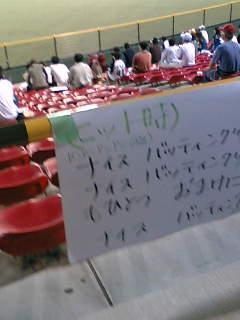 (ヒット時)
ナイス バッティング
ナイス バッティング
もひとつ おまけに
ナイス バッティング